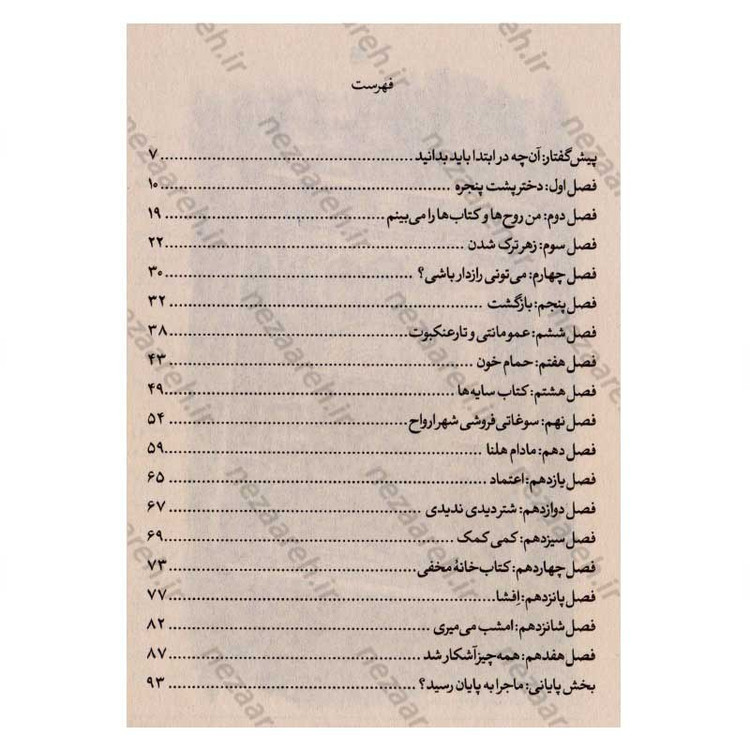 فهرست
پیش‌گفتار: آن‌چه در ابتدا باید بدانید ........ ۷
فصل اول: دختر پشت پنجره ........ ۱۰
فصل دوم: من روح‌ها و کتاب‌ها را می‌بینم ........ ۱۹
فصل سوم: زهرترک شدن ........ ۲۲
فصل چهارم: می‌تونی رازدار باشی؟ ........ ۳۰
فصل پنجم: بازگشت ........ ۳۲
فصل ششم: عمو مانتی و تار عنکبوت ........ ۳۸
فصل هفتم: حمام خون ........ ۴۳
فصل هشتم: کتاب سایه‌ها ........ ۴۹
فصل نهم: سوغاتی‌فروشی شهر ارواح ........ ۵۴
فصل دهم: مادام هلنا ........ ۵۹
فصل یازدهم: اعتماد ........ ۶۵
فصل دوازدهم: شتر دیدی ندیدی ........ ۶۷
فصل سیزدهم: کمی کمک ........ ۶۹
فصل چهاردهم: کتاب‌خانهٔ مخفی ........ ۷۳
فصل پانزدهم: اِفشا ........ ۷۷
فصل شانزدهم: امشب می‌میری ........ ۸۲
فصل هفدهم: همه‌چیز آشکار شد ........ ۸۷
بخش پایانی: ماجرا به پایان رسید؟ ........ ۹۳
nezaareh.ir